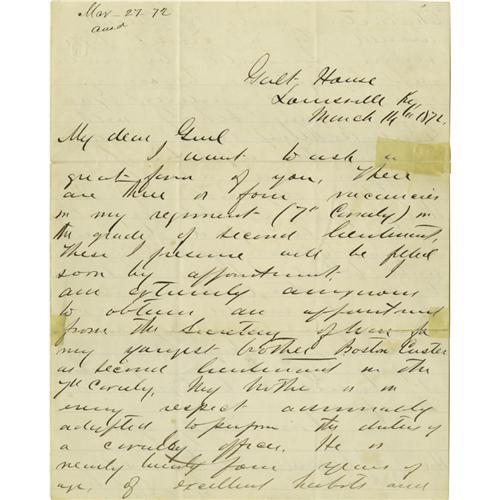 Mar - 27. 72
ansd
Galt House
Louisville Ky,
March 14th 1872.
My dear Genl
I want to ask a
great favor of you, There
are three or four vacancies
in my regiment (7th Cavalry) in
the grade of second lieutenant,
These I presume will be filled
soon by appointment.
am extremely anxious
to obtain an appointment
from the Secretary of War for
my youngest brother Boston Custer
as second lieutenant in the
7th Cavalry, My brother is in
every respect admirably
adapted to perform the duties of
a cavalry officer, He is
nearly twenty four years of
age, of excellent habits and